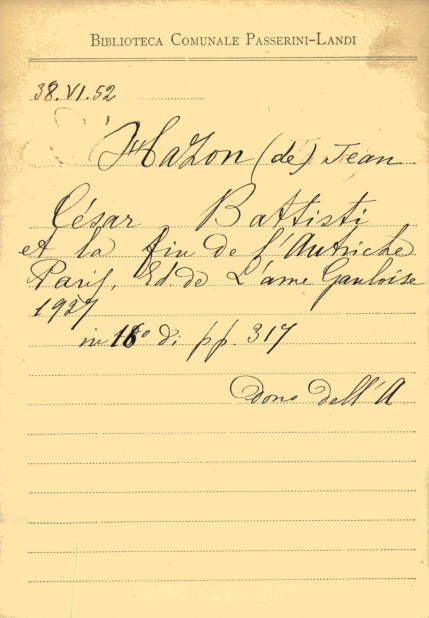 BIBLIOTECA COMUNALE PASSERINI-LANDI
38.VI.52
Hazon (de) Jean
César Battisti
et la fin de l'Autriche
Paris, Ed. de L'ame Gauloise
1927
in 16° di pp. 317
Dono dell'A